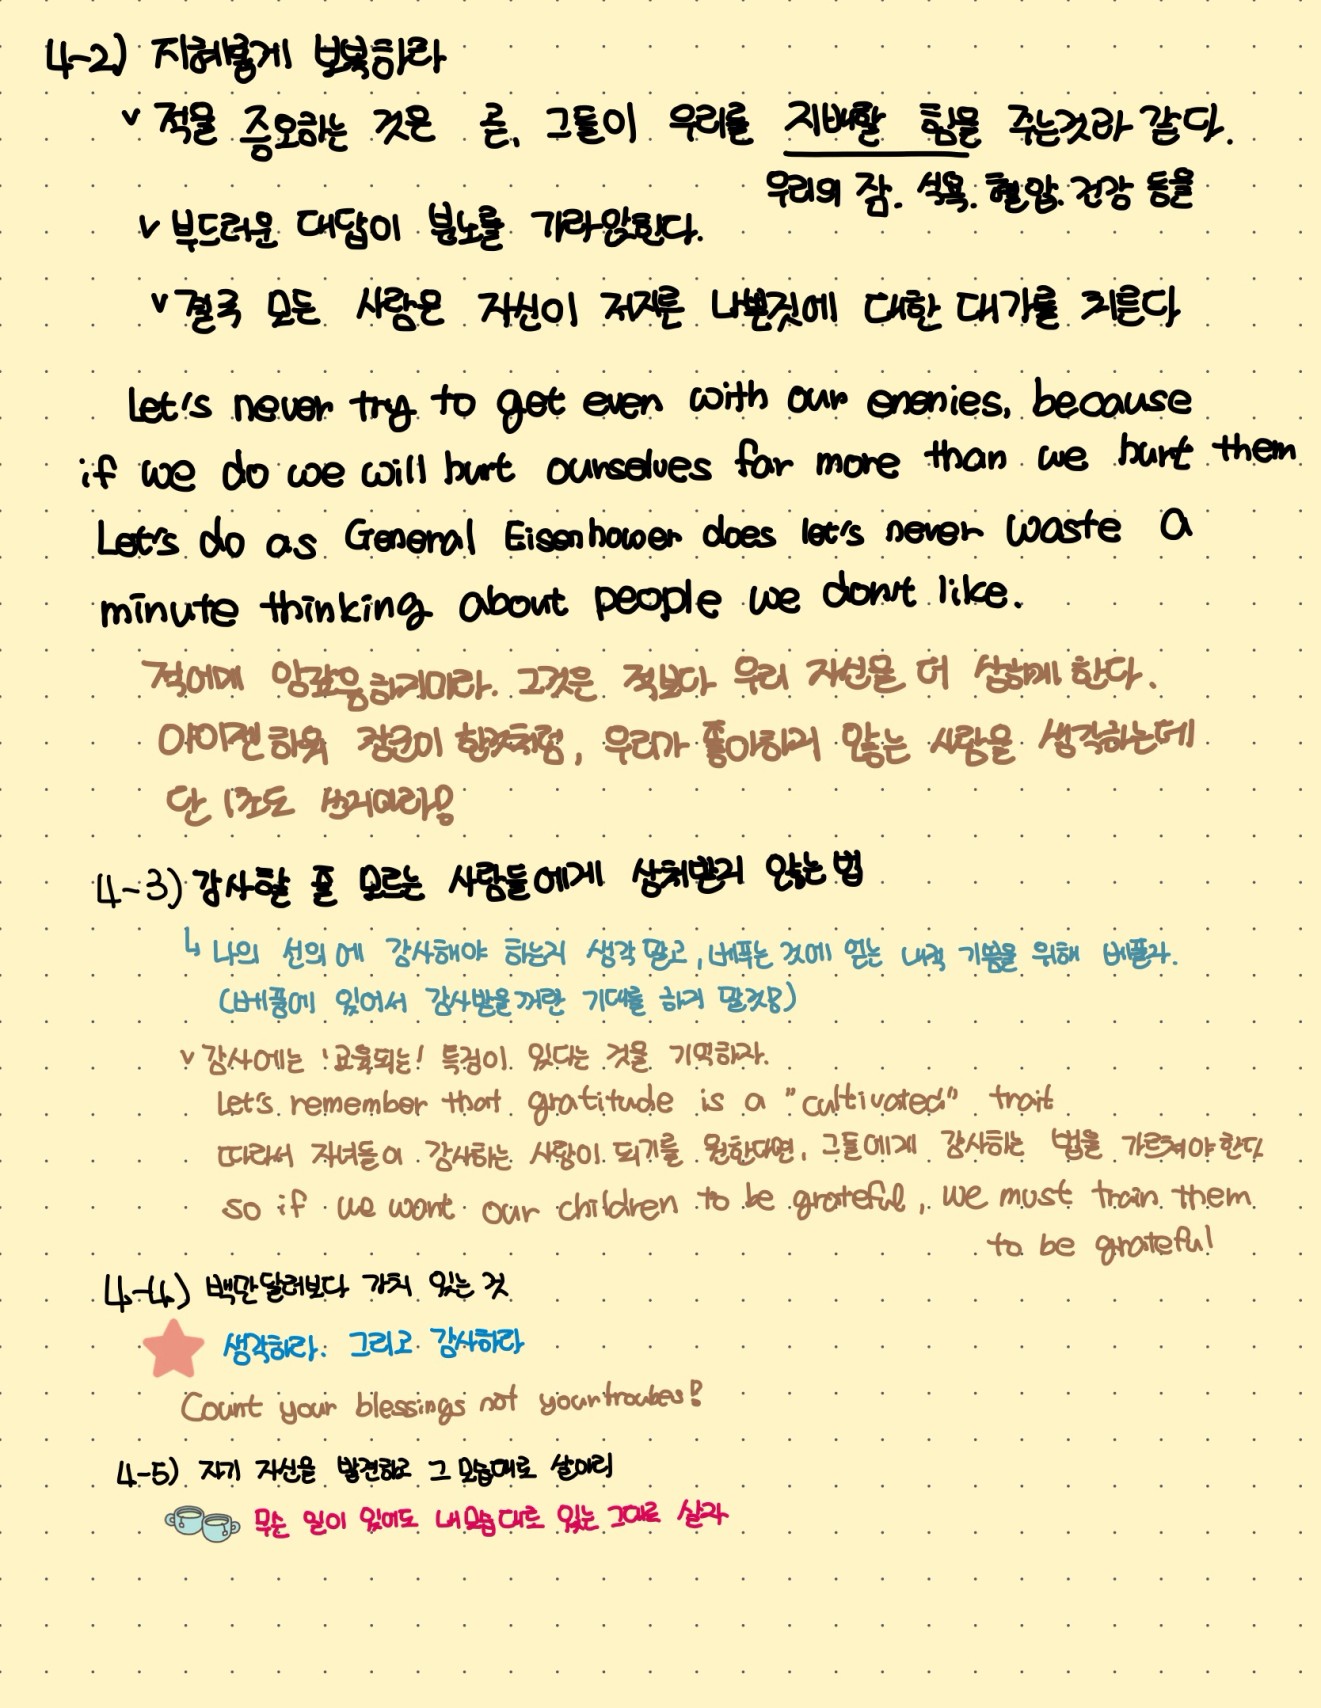 4-2) 지혜롭게 보복하라
v 적을 증오하는 것은 곧, 그들이 우리를 지배할 힘을 주는것과 같다.
우리의 잠. 식욕. 혈압. 건강 등을
v 부드러운 대답이 분노를 가라앉힌다.
v 결국 모든 사람은 자신이 저지른 나쁜짓에 대한 대가를 치른다
Let's never try to get even with our enenies, because
if we do we will hurt ourselves far more than we hurt them
Let's do as General Eisenhower does let's never waste a
minute thinking about people we don't like.
적에게 앙갚음하지마라. 그것은 적보다 우리 자신을 더 상하게 한다.
아이젠하워 장군이 한것처럼, 우리가 좋아하지 않는 사람을 생각하는데
단 1초도 쓰지마라!
4-3) 감사할 줄 모르는 사람들에게 상처받지 않는 법
↳ 나의 선의에 감사해야 하는지 생각 말고, 베푸는 것에 얻는 내적 기쁨을 위해 베풀자.
(베품에 있어서 감사받을꺼란 기대를 하지 말것!)
v 감사에는 '교육되는' 특징이 있다는 것을 기억하자.
Let's remember that gratitude is a "cultivated" trait
따라서 자녀들이 감사하는 사람이 되기를 원한다면, 그들에게 감사하는 법을 가르쳐야 한다
so if we want our children to be grateful, we must train them
to be grateful
4-4) 백만달러보다 가치 있는 것
생각하라. 그리고 감사하라
Count your blessings not your troubles!
4-5) 자기 자신을 발견하고 그 모습대로 살아라
무슨 일이 있어도 내모습대로 있는 그대로 살자